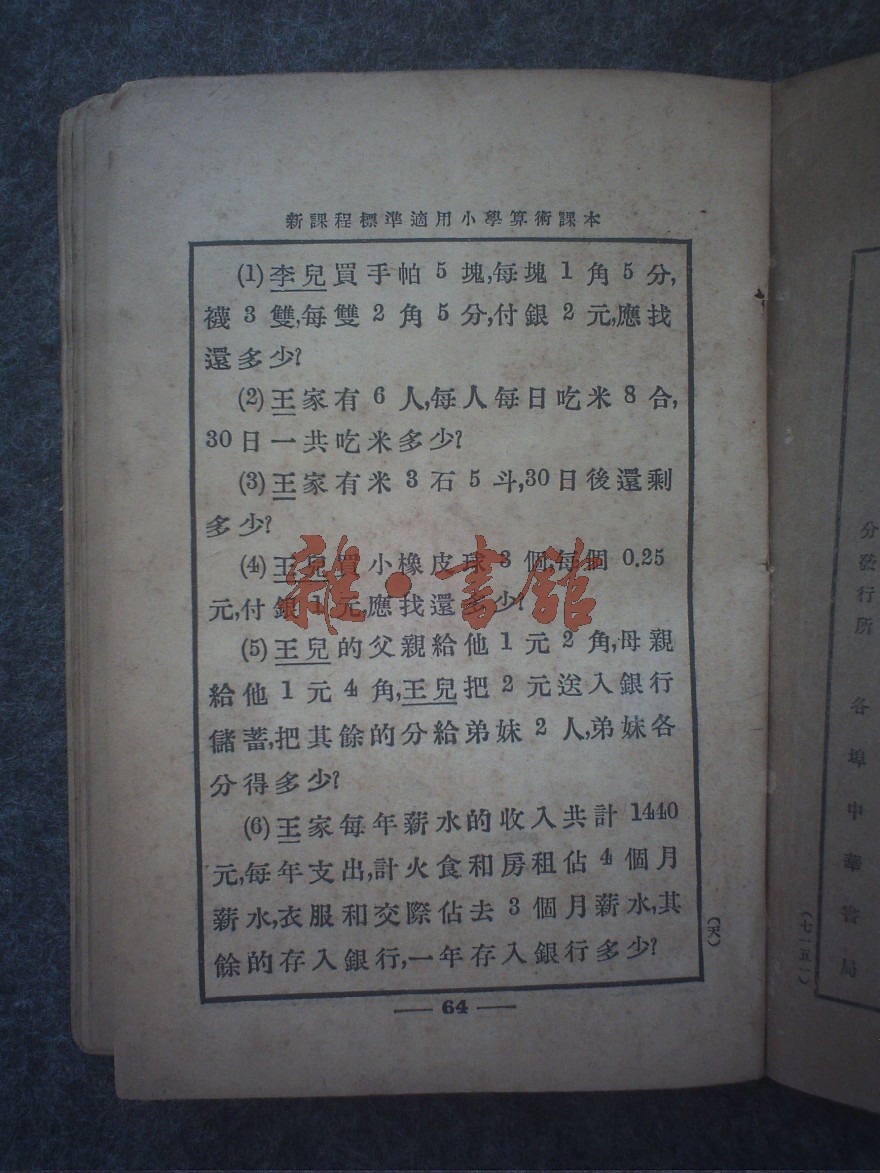 新課程標準適用小學算術課本
(1)李兒買手帕5塊,每塊1角5分,
襪3雙,每雙2角5分,付銀2元,應找
還多少?
(2)王家有6人,每人每日吃米8合,
30日一共吃米多少?
(3)王家有米3石5斗,30日後還剩
多少?
(4)王兒買小橡皮球3個,每個0.25
元,付銀1元,應找還多少?
(5)王兒的父親給他1元2角,母親
給他1元4角,王兒把2元送入銀行
儲蓄,把其餘的分給弟妹2人,弟妹各
分得多少?
(6)王家每年薪水的收入共計1440
元,每年支出,計火食和房租佔4個月
薪水,衣服和交際佔去3個月薪水,其
餘的存入銀行,一年存入銀行多少?
(天)
— 64 —
雜·書館
分發行所 各埠中華書局
(七一五一)